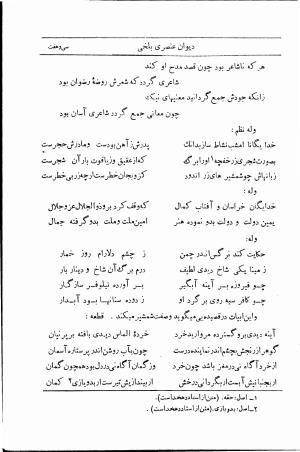 دیوان عنصری بلخی
سی‌وهفت
هر که ناشاعر بود چون قصد مدح او کند
شاعری گردد که شعرش روضهٔ رضوان بود
زانکه جودش جمع گرداند معنیهای نیک
چون معانی جمع گردد شاعری آسان بود
وله نظم :
خدا یگانا امشب نشاط ساز بدانك پدرش زآهن بودست و مادرش حجرست
بصورت شجری زر خفچه ۱ اورا برگ که از عقیق و زیاقوت بار آن شجرست
زبانهاش چو شمشیر های زر اندود کز و بجان خطرست ارچه زر بی خطرست
وله :
خدایگان خراسان و آفتاب کمال که وقف کرد برو ذو الجلال عز و جلال
یمین دولت و دولت بدو نموده هنر امین ملت و ملت بدو گرفته جمال
وله:
حکایت کند نرگس اندر چمن ز چشم دلارام روز خمار
ز مینا یکی شاخ دیدی لطیف درم برگ آن شاخ و دینار بار
چو فیروزه بر آینه آبگیر بر آورده نیلوفر سازگار
چو کافر سیه روی بر گرد او ز دوده سنانها بود آبدار
و این ابیات در قصیده‌یی میگوید و صفت شمشیر میکند . قطعه :
آینه دیدی برو گسترده مروارید خرد خردهٔ الماس دیدی بافته بر پرنیان
گوهر از رنگش بچشم اندر نماینده درست چون بآب روشن اندر پر ستاره آسمان
از خرد آگاه نی در مغز باشد چون خرد وز گمان آگاه نی در دل بود همچون گمان
از بجنبانیش آبست ار بگردانی درخش ار بیندازیش تیرست ار بدو یازی ۲ کمان
۱ـ اصل: حقه . (متن از استاد دهخداست) .
۲ـ اصل: بدو بازی. (متن از استاد دهخداست) .